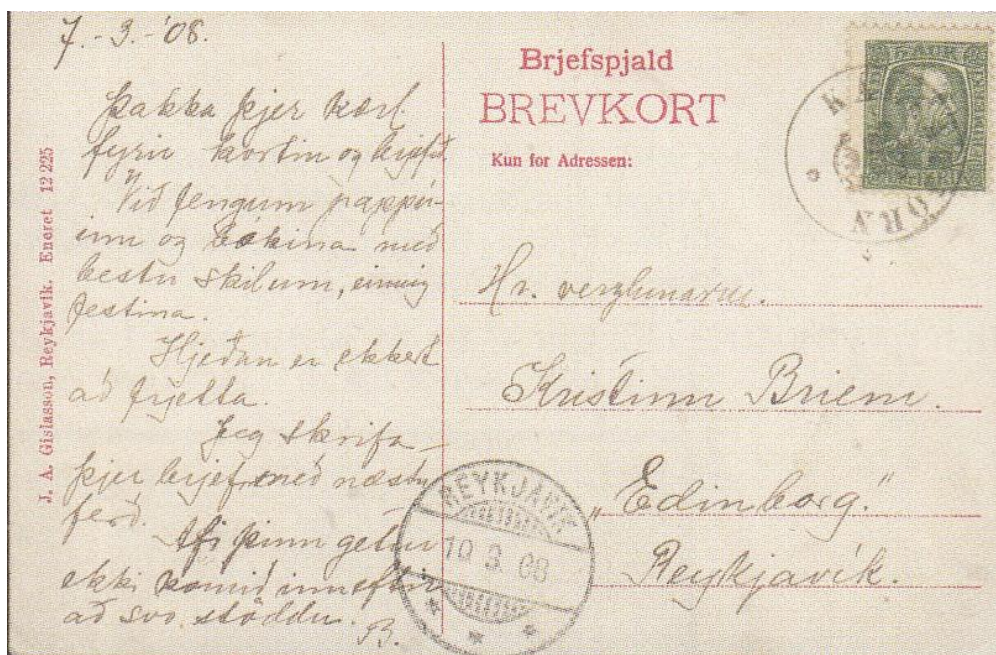 7.-3.-'08.
Þakka þjer kærl.
fyrir kortin og brjefið.
Við fengum pappír-
inn og bókina með
bestu skilum, einnig
festina.
Hjeðan er ekkert
að frjetta.
Jeg skrifa
þjer brjef með næstu
ferð.
Afi þinn getur
ekki komið inneftir
að svo stöddu.
B.
J. A. Gislasson, Reykjavik. Eneret 12 225
Brjefspjald
BREVKORT
Kun for Adressen:
Hr. verzlunarm.
Kristinn Briem.
"Edinborg."
Reykjavík.
REYKJAVIK
10 3. 08